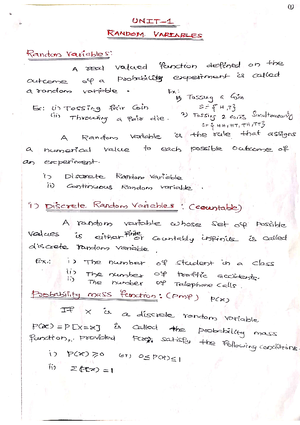 (1)
UNIT-1
RANDOM VARIABLES
Random Variables:
A real valued function defined on the
outcome of a probability experiment is called
a random variable.
Ex: (i) Tossing fair coin
(ii) Throwing a fair die.
Ex:
1) Tossing a coin
S = {H,T}
2) Tossing 2 coins simultaneously
S = {HH,HT,TH,TT}
A Random variable is the rule that assigns
a numerical value to each possible outcome of
an experiment.
i) Discrete Random Variable
ii) Continuous Random Variable.
i) Discrete Random Variables: (countable)
A random variable whose set of possible
values is either finite or countably infinite is called
discrete random variable.
Ex.: i) The number of student in a class
ii) The number of traffic accidents.
iii) The number of Telephone calls.
Probability mass function: (PMF) P(x)
If X is a discrete random variable
P(x) = P[X=x] is called the probability mass
function, provided P(x) satisfy the following conditions.
i) P(x) ≥ 0 (or) 0≤P(x)≤1
ii) Σ P(x) = 1